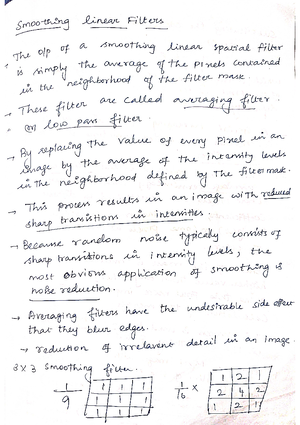 Smoothing linear Filters
→ The o/p of a smoothing linear spatial filter
is simply the average of the pixels contained
in the neighborhood of the filter mask.
→ These filter are called averaging filter
(or) low pass filter.
→ By replacing the value of every pixel in an
image by the average of the intensity levels
in the neighborhood defined by the filter mask.
→ This process results in an image with reduced
sharp transitions in intensities.
→ Because random noise typically consists of
sharp transitions in intensity levels, the
most obvious application of smoothing is
noise reduction.
→ Averaging filters have the undesirable side effect
that they blur edges.
→ reduction of irrelevant detail in an image.
3x3 Smoothing filter.
1/9
1 1 1
1 1 1
1 1 1
1/16 ×
1 2 1
2 4 2
1 2 1